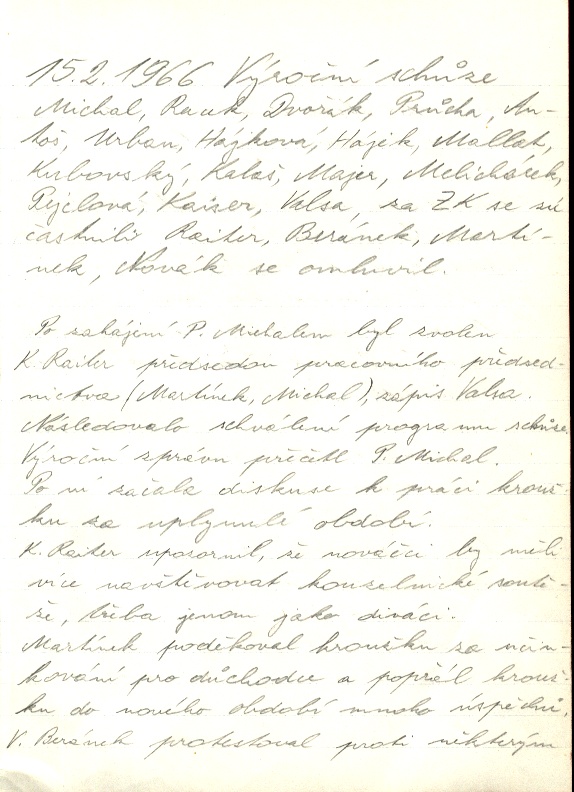 15.2.1966 Výroční schůze
Michal, Rauk, Dvořák, Průcha, An-
toš, Urban, Hájková, Hájek, Mallat,
Kubovský, Kalaš, Majer, Melichárek,
Pejclová, Kaiser, Valsa, za ZK se zú
častnili Raiter, Beránek, Martí-
nek, Novák se omluvil.
Po zahájení P. Michalem byl zvolen
K. Raiter předsedou pracovního předsed-
nictva (Martínek, Michal), zápis Valsa.
Následovalo schválení programu schůze.
Výroční zprávu přečetl P. Michal.
Po ní začala diskuse k práci krouž-
ku za uplynulé období.
K. Raiter upozornil, že nováčci by měli
více navštěvovat kouzelnické soutě-
že, třeba jenom jako diváci.
Martínek poděkoval kroužku za účin-
kování pro důchodce a popřál krouž-
ku do nového období mnoho úspěchů.
V. Beránek protestoval proti některým